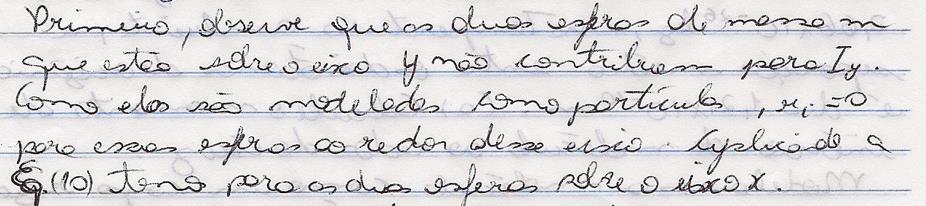 Primeiro, observe que as duas esferas de massa m
que estão sobre o eixo y não contribuem para Iy.
Como elas são modeladas como partículas, ri = 0
para essas esferas ao redor desse eixo. Aplicando a
Eq. (10) temos para as duas esferas sobre o eixo x.